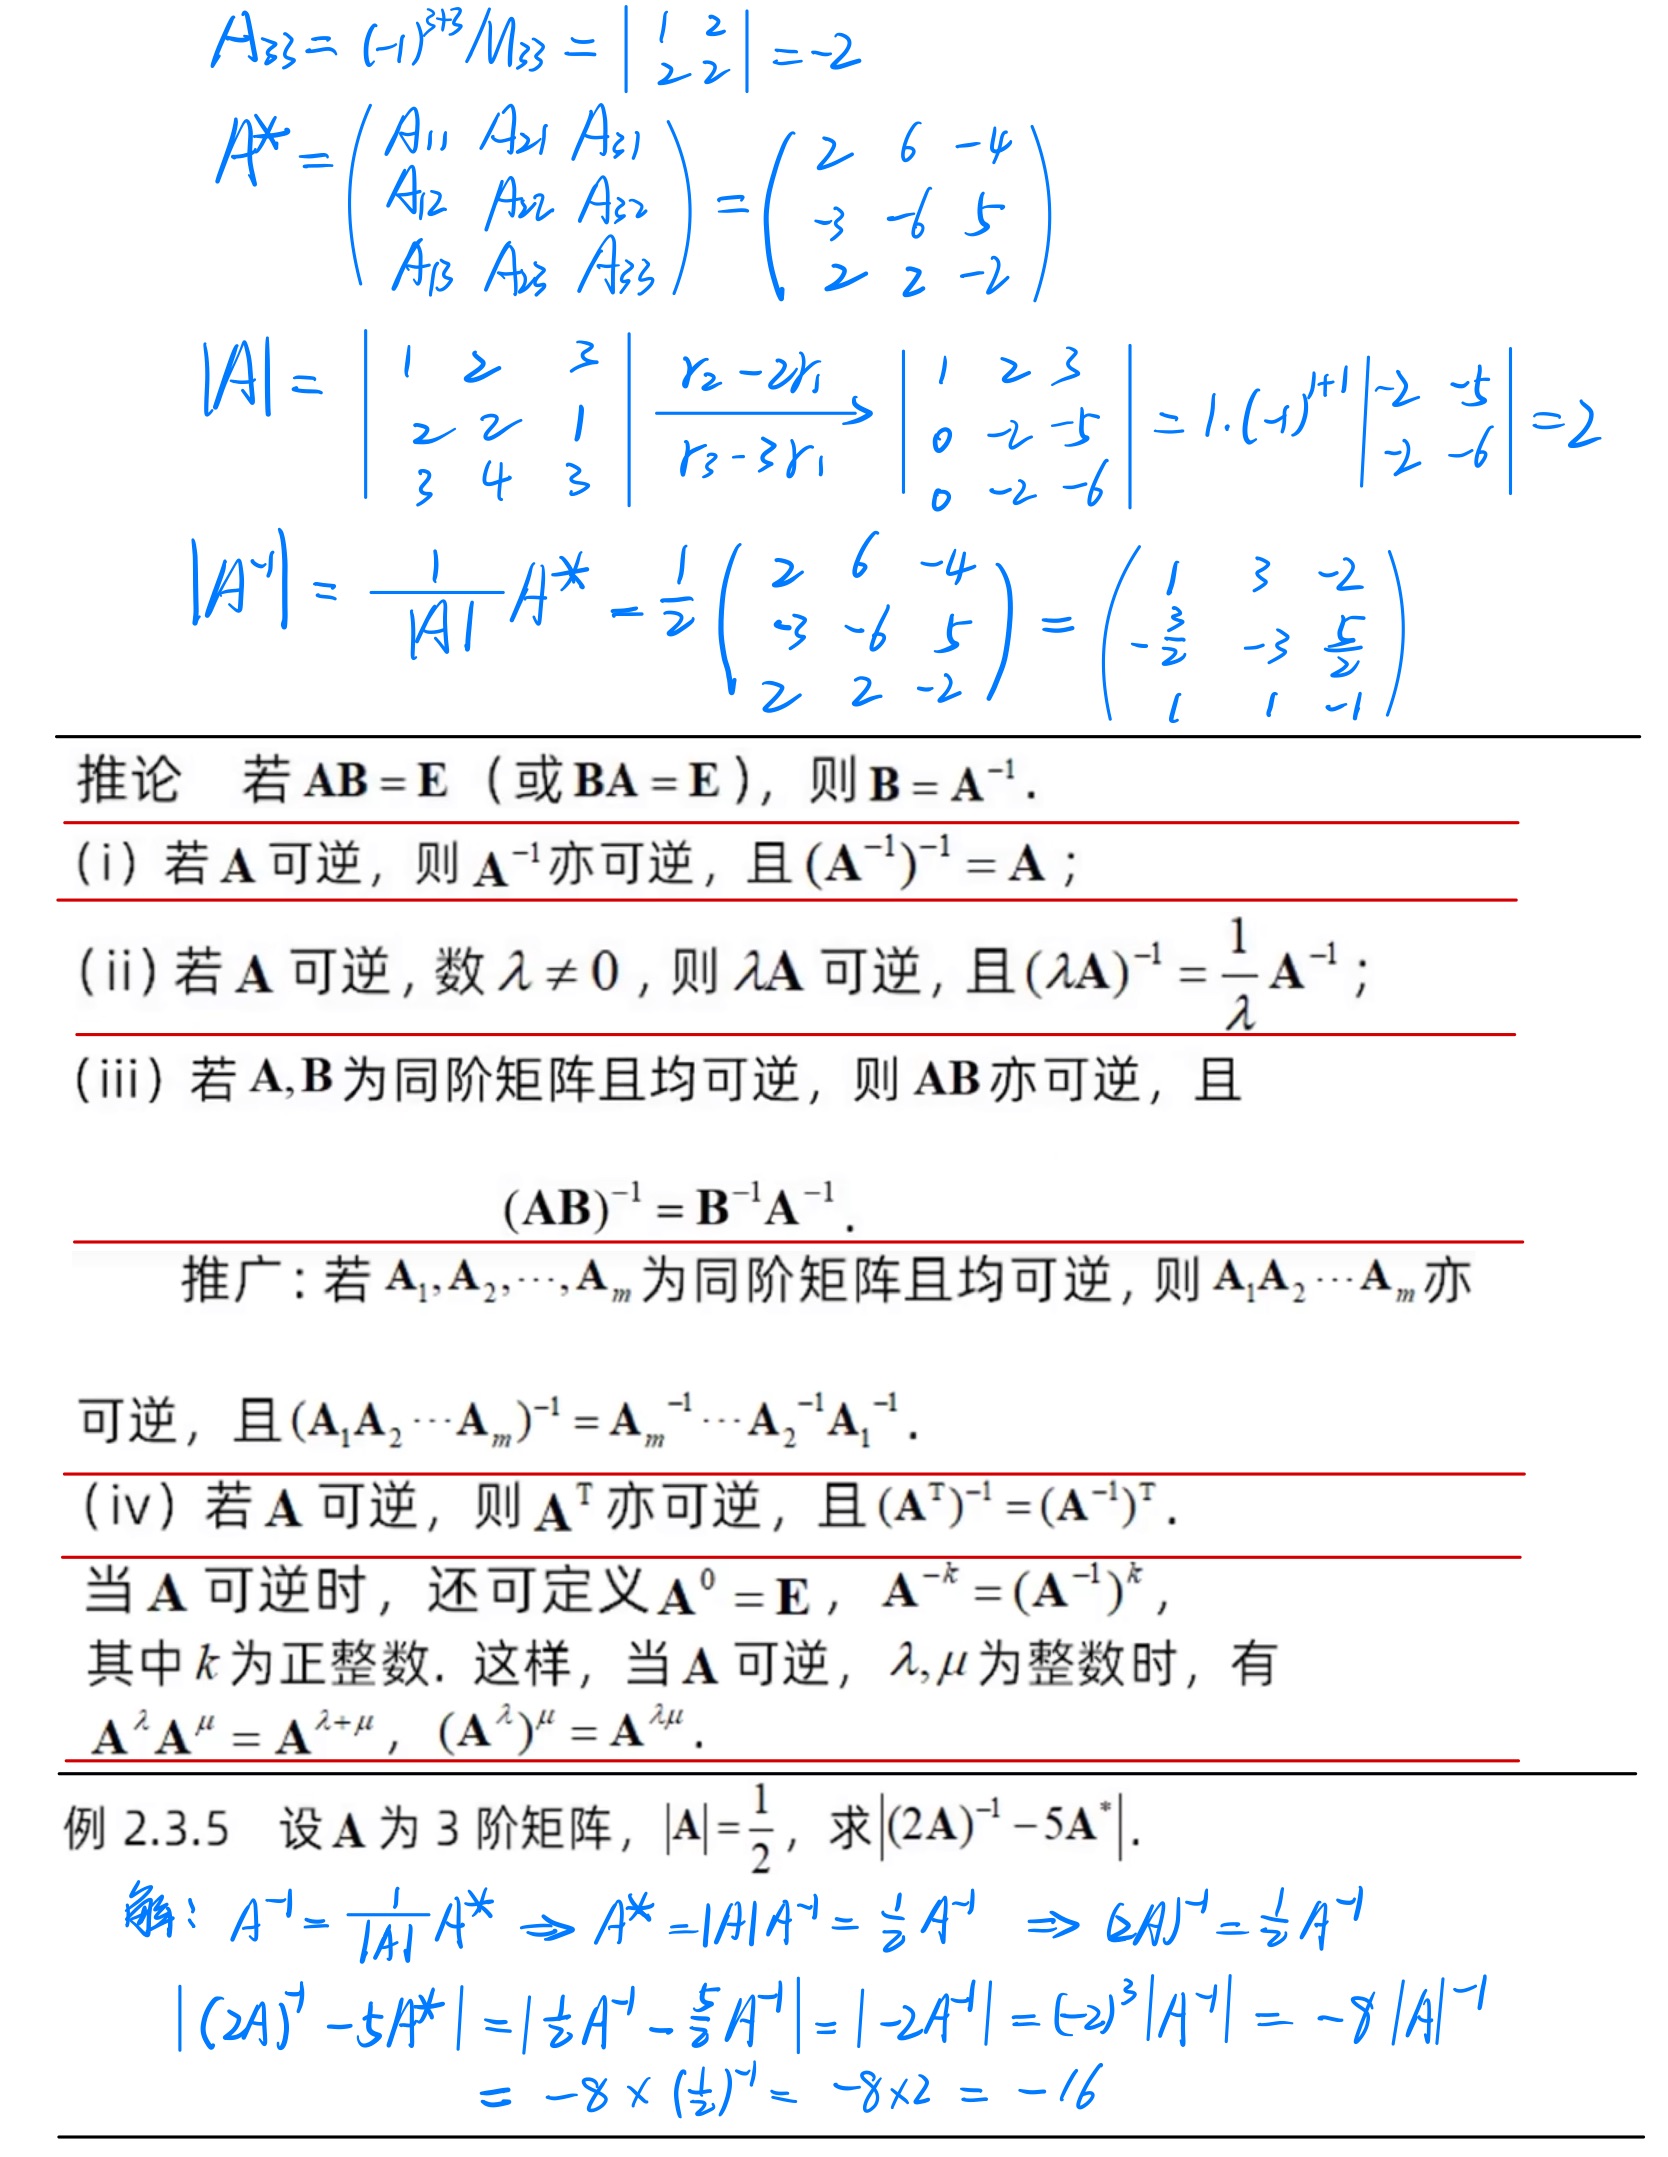 A₃₃ = (-1)³⁺³ M₃₃ = | 1 2 ; 2 2 | = -2
A* = ( A₁₁ A₂₁ A₃₁ ; A₁₂ A₂₂ A₃₂ ; A₁₃ A₂₃ A₃₃ ) = ( 2 6 -4 ; -3 -6 5 ; 2 2 -2 )
|A| = | 1 2 3 ; 2 2 1 ; 3 4 3 | r₂ - 2r₁ r₃ - 3r₁ → | 1 2 3 ; 0 -2 -5 ; 0 -2 -6 | = 1·(-1)¹⁺¹ | -2 -5 ; -2 -6 | = 2
|A⁻¹| = 1/|A| A* = 1/2 ( 2 6 -4 ; -3 -6 5 ; 2 2 -2 ) = ( 1 3 -2 ; -3/2 -3 5/2 ; 1 1 -1 )
推论 若 AB = E (或 BA = E ), 则 B = A⁻¹.
(i) 若 A 可逆, 则 A⁻¹ 亦可逆, 且 (A⁻¹)⁻¹ = A ;
(ii) 若 A 可逆, 数 λ ≠ 0 , 则 λA 可逆, 且 (λA)⁻¹ = 1/λ A⁻¹ ;
(iii) 若 A, B 为同阶矩阵且均可逆, 则 AB 亦可逆, 且
(AB)⁻¹ = B⁻¹A⁻¹ .
推广: 若 A₁, A₂, ⋯, Aₘ 为同阶矩阵且均可逆, 则 A₁A₂⋯Aₘ 亦
可逆, 且 (A₁A₂⋯Aₘ)⁻¹ = Aₘ⁻¹⋯A₂⁻¹A₁⁻¹ .
(iv) 若 A 可逆, 则 Aᵀ 亦可逆, 且 (Aᵀ)⁻¹ = (A⁻¹)ᵀ .
当 A 可逆时, 还可定义 A⁰ = E , A⁻ᵏ = (A⁻¹)ᵏ ,
其中 k 为正整数. 这样, 当 A 可逆, λ, μ 为整数时, 有
A^λ A^μ = A^(λ+μ) , (A^λ)^μ = A^(λμ) .
例 2.3.5 设 A 为 3 阶矩阵, |A| = 1/2 , 求 |(2A)⁻¹ - 5A*| .
解: A⁻¹ = 1/|A| A* ⇒ A* = |A|A⁻¹ = 1/2 A⁻¹ ⇒ (2A)⁻¹ = 1/2 A⁻¹
|(2A)⁻¹ - 5A*| = | 1/2 A⁻¹ - 5/2 A⁻¹ | = | -2A⁻¹ | = (-2)³ |A⁻¹| = -8 |A|⁻¹
= -8 × (1/2)⁻¹ = -8×2 = -16